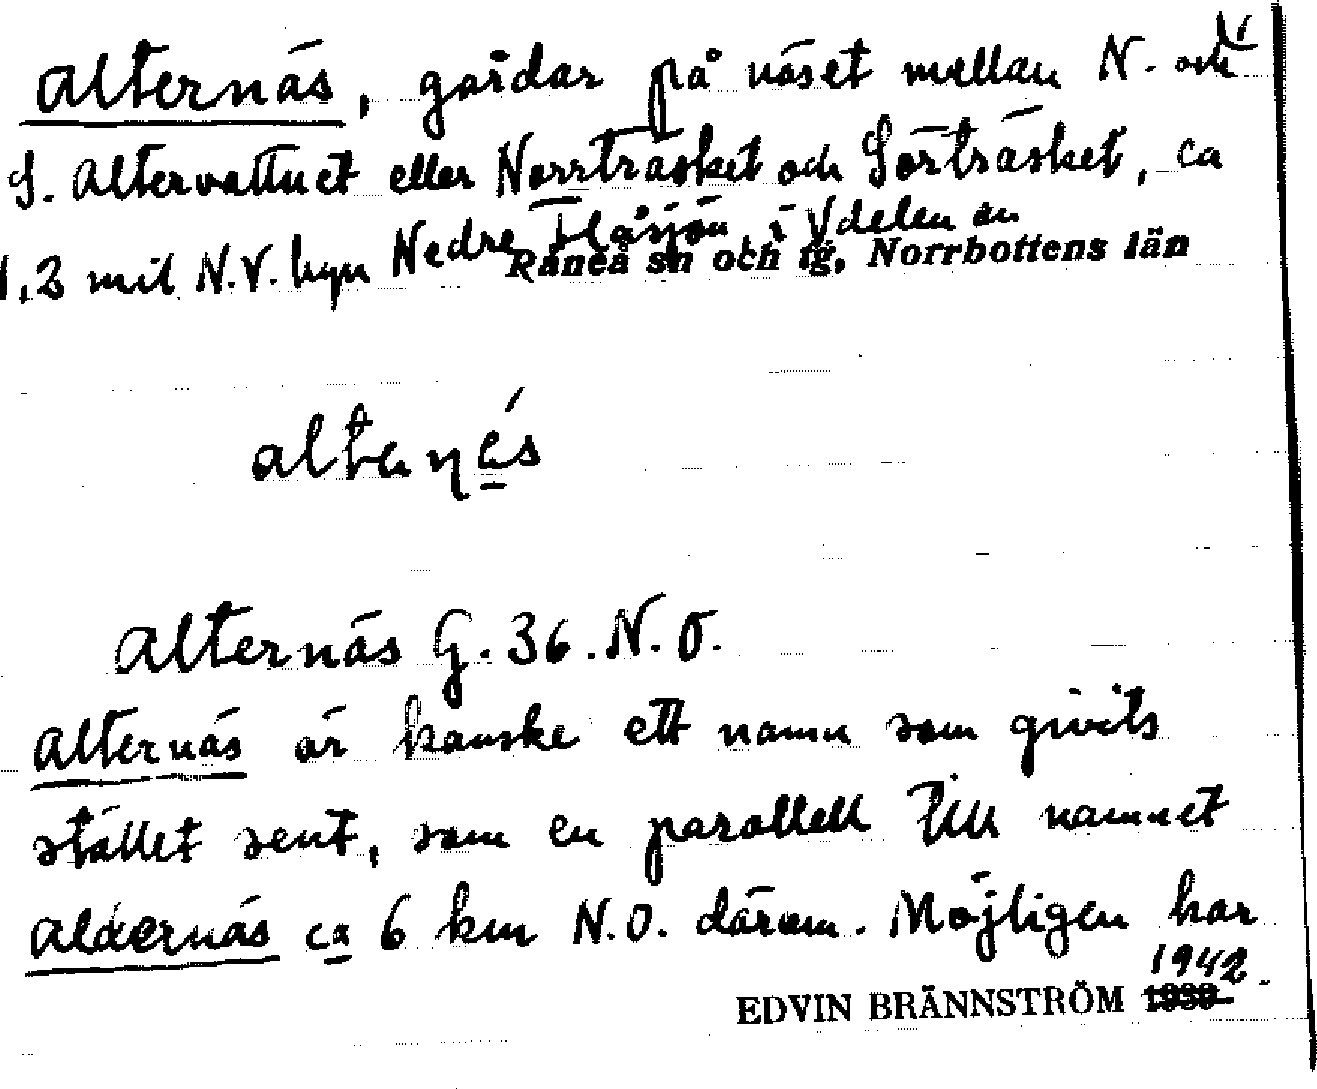 Alternäs, gårdar på näset mellan N. och
S. Altervattnet eller Norrträsket och Sörträsket, ca
1,2 mil N.V. byn Nedre Flåsjön, i V delen av
Råneå sn och tg, Norrbottens län
altenés
Alternäs G. 36. N.O.
Alternäs är kanske ett namn som givits
stället sent, som en parallell till namnet
Aldernäs ca 6 km N.O. därom. Möjligen har
1942
EDVIN BRÄNNSTRÖM 1939